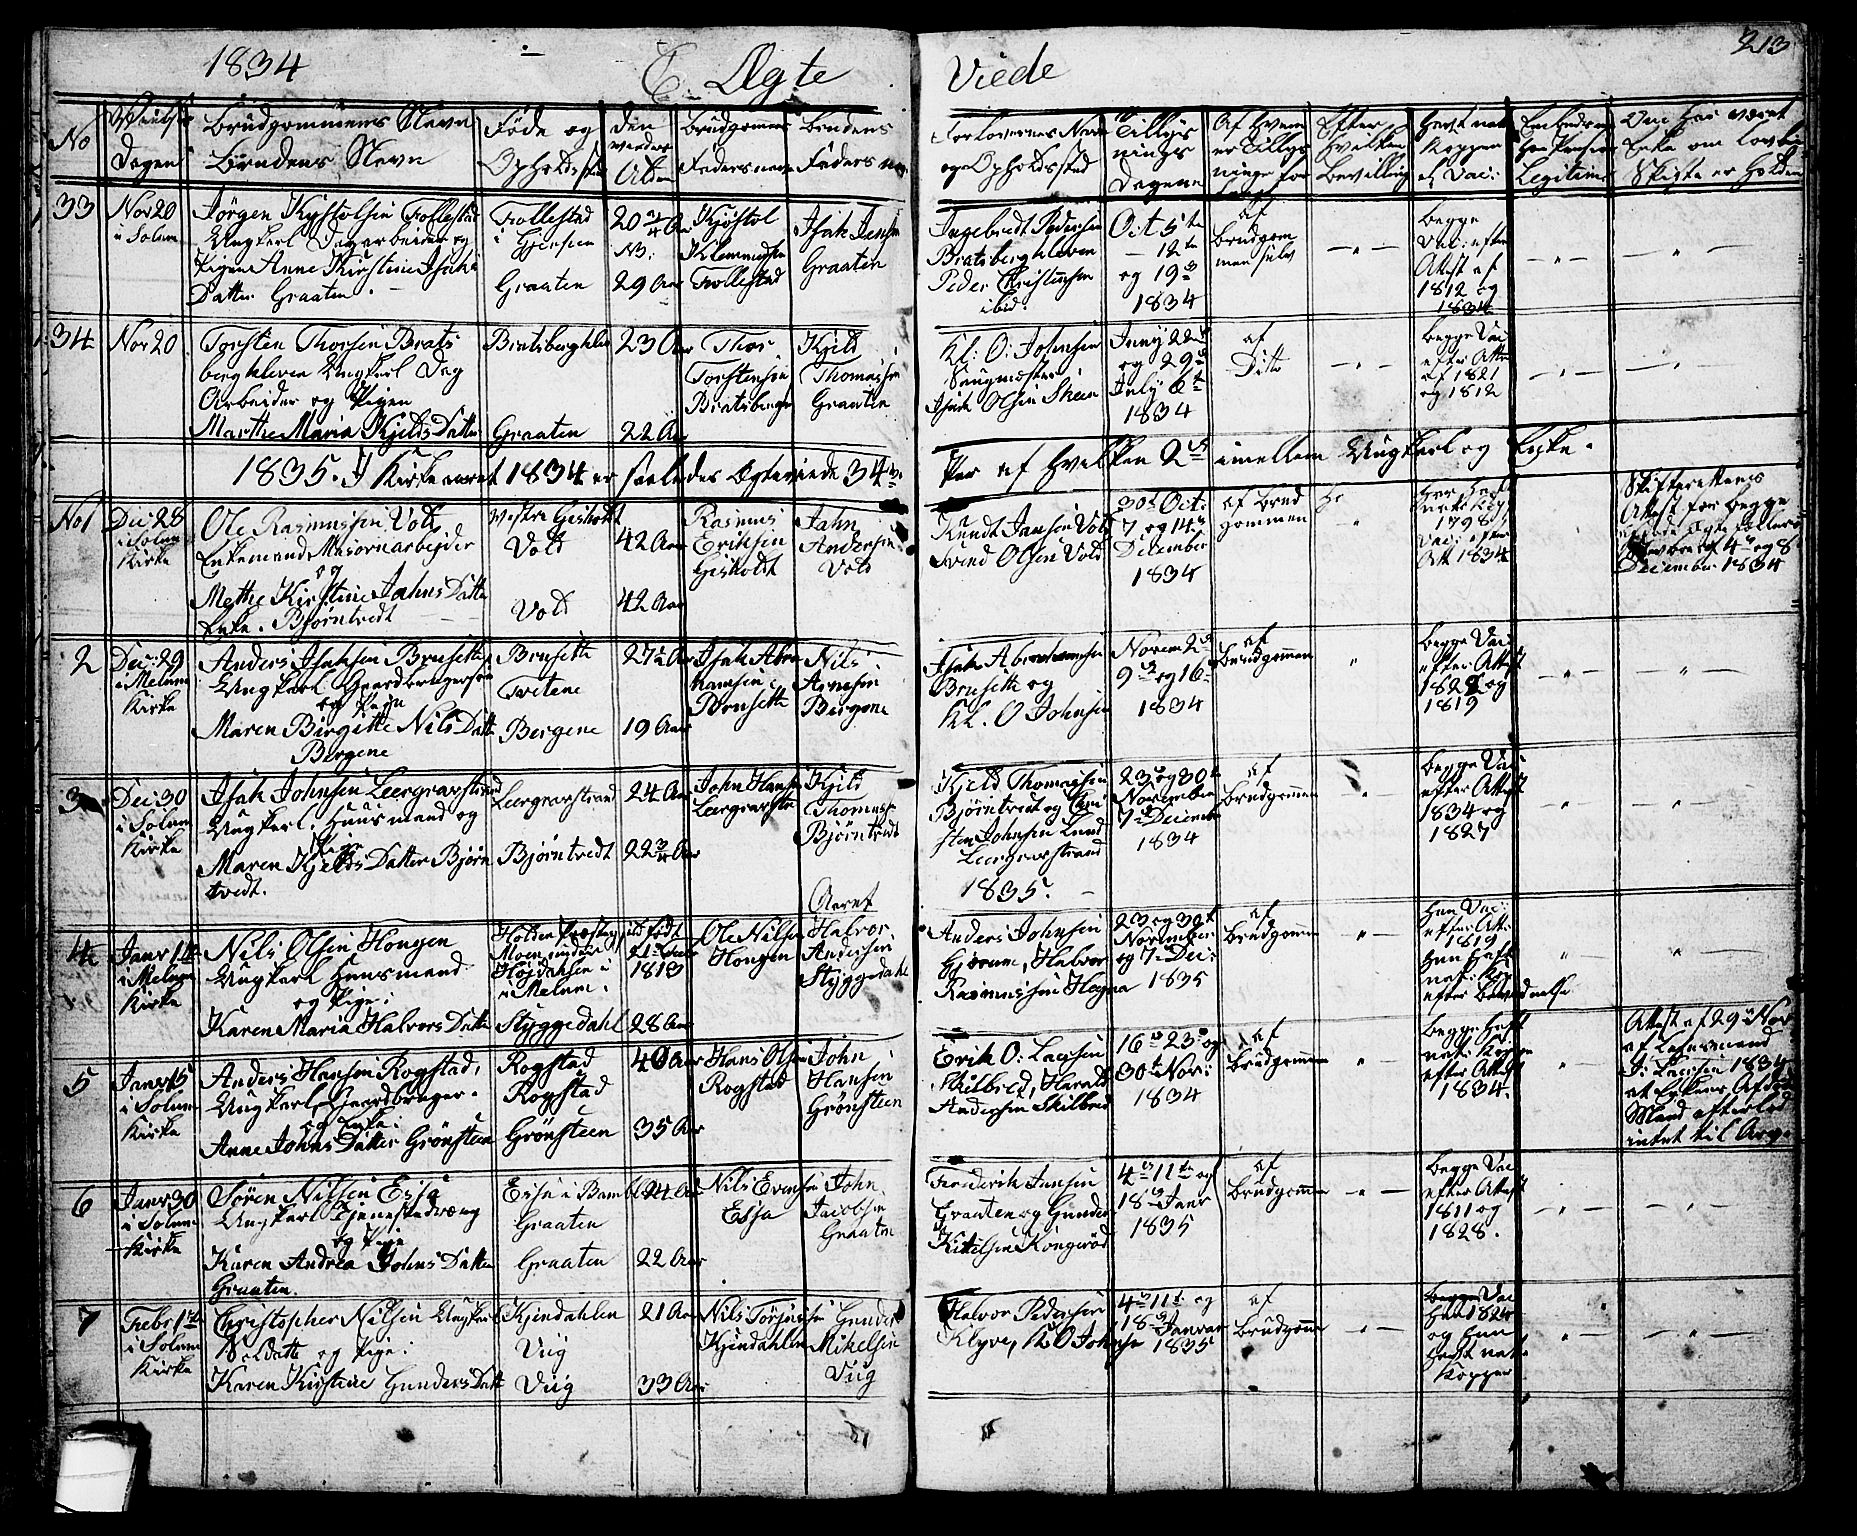 1834
E. Ægte
Viede
213
No
Vielses
Dagen
Brudgommens Navn
Brudens Navn
Føde og
Opholdssted
Den
Alder
Brudgommens
Faders navn
Brudens
Faders navn
Forlovernes Navn
og Opholdssted
Tillys
nings
Dagene
Af hvem
er Tillys
ninge for
Efter
hvilken
Bevilling
Havt nat:
Kopper
el. Vac:
Legitime
Skifte er holden
33
Nov 20
i Solum
Jørgen Kjøstolsen Follestad
Ungkarl Dagarbeider og
Pigen Anne Kirstine Isaks
Datter Graaten.
Follestad
i Gjersen
Graaten
20 3/4 Aar
29 Aar
Kjøstol
Klemmetsen
Follestad
Isak Jensen
Graaten
Ingebredt Pedersen
Bratsbergkleven
Peder Christensen
ibid.
Oct 5te
12te
og 19de
1834
af
Brudgom
men selv
Begge
Vac: efter
Attest af
1812 og
1834
34
Nov 20
Torsten Thorsen Brats
bergkleven Ungkarl Dag
Arbeider og Pigen
Marthe Maria Kjelds Datter
Bratsbergklev
Graaten
23 Aar
22 Aar
Thor
Torstensen
Bratsberg
Kjeld
Thomassen
Graaten
Kl: O: Johnsen
Saugmester
Isak Olsen Skeen
Juny 22de
og 29de
July 6te
1834
af
Ditto
Begge Vac
efter Atte
af 1821
og 1812
1835. I Kirkeaaret 1834 er saaledes Ægteviede 34
Par af hvilken 2de imellem Ungkarl og Enke.
No 1
Dec: 28
i Solum
Kirke
Ole Rasmussen Vold
Enkemand Masovnarbejder
og
Methe Kirstine Jahns Datter
Enke. Bjørntvedt
Vestre Gisholt
Vold
Vold
42 Aar
42 Aar
Rasmus
Eriksen
Gisholdt
Jahn
Andersen
Vold
Knudt Jansen Vold
Svend Olsen Vold
30te Oct:
7 og 14de
December
1834
af Brud
gommen
1798
Vac: efter
Att 1834
Skifterettens
Attest for begge
4de og 8
December 1834
2
Dec: 29
i Melum
Kirke
Anders Isaksen Brusette
Ungkarl Gaardbrugersøn
og Pigen
Maren Birgitte Nils Datt
Bergene
Brusette
Tvetene
Bergene
27 1/2 Aar
19 Aar
Isak Abra
hamsen
Brusette
Nils
Arnesen
Bergene
Isak Abrahamsen
Brusette og
Kl. O Johnsen
Novem 2de
9de og 16
1834
af
Brudgommen
Begge Vac
efter Attest
1822 og
1819
3
Dec: 30
i Solum
Kirke
Isak Johnsen Leergravstrand
Ungkarl. Huusmand og
Pige
Maren Kjelds Datter Bjørn
tvedt.
Leergravstrand
Bjørntvedt
24 Aar
22 3/4 Aar
John Hansen
Leergravstr
Kjeld
Thomassen
Bjørntvedt
Kjeld Thomassen
Bjørntvedt og Chri
sten Johnsen Lund
Leergravstrand
23 og 30te
November
7de December
1834
af
Brudgommen
Begge Vac
efter Attest
1834 og
1827
Aaret
1835.
4
Janr 14
i Melum
Kirke
Nils Olsen Hougen
Ungkarl Huusmand
og Pige:
Karen Maria Halvors Datter
Holden Præstegjeld
Moen, under
Højdahlen i
i Melum.
Styggedahl
født
21 Dec
1813
28 Aar
Ole Nilsen
Hougen
Halvor
Andersen
Styggedahl
Anders Johnsen
Gjerum, Halvor
Rasmussen Hagna
23 og 30te
November
og 7de Dec:
1835
af
Brudgommen
Han Vac:
efter Att:
1819
Hun haft
nat: Kop
efter Bekiendtelse
5
Janr 15
i Solum
Kirke
Anders Hansen Rogstad,
Ungkarl, Gaardbruger.
og Enke:
Anne Johns Datter Grönsteen
Rogstad
Rogstad
Grönsteen
40 Aar
35 Aar
Hans Olsen
Rogstad
John
Hansen
Grönsteen
Erik O: Larsen
Skilbred, Harald
Andersen Skilbred
16de 23de og
30te Nov:
1834
af
Brudgommen
Begge haft
nat: Kopper
efter Attest
1834.
Attest af 29de Nov
af Lensmand
J: Larsen 1834
at Enkens Afdøde
Mand efterlod
intet til Arv.
6
Janr 30
i Solum
Kirke
Søren Nilsen Essa
Ungkarl Tjenestedreng
og Pige
Karen Andrea Johns Datter
Graaten.
Essa i Bamble
Graaten
Graaten
24 Aar
22 Aar
Nils Evensen
Essa
John
Jacobsen
Graaten
Frederik Jansen
Graaten og Gunder
Kittilsen Kongerød
4de 11te og
18de Janr
1835
af
Brudgommen
Begge Vac
efter Attest
1811 og
1828.
7
Febr 1ste
i Solum
Kirke
Christopher Nilsen Ungkarl
Soldatt og Pige:
Karen Kirstine Gunders Datt
Kjendahlen
Vug
Vug
21 Aar
33 Aar
Nils Törjussen
Kjendahlen
Gunder
Mikelsen
Vug
Halvor Pedersen
Klyve, Kl O Johnsen
4de 11te og
18de Januar
1835
af
Brudgommen
Begge Vac
Han 1824
og Hun
havt nat:
Kopper